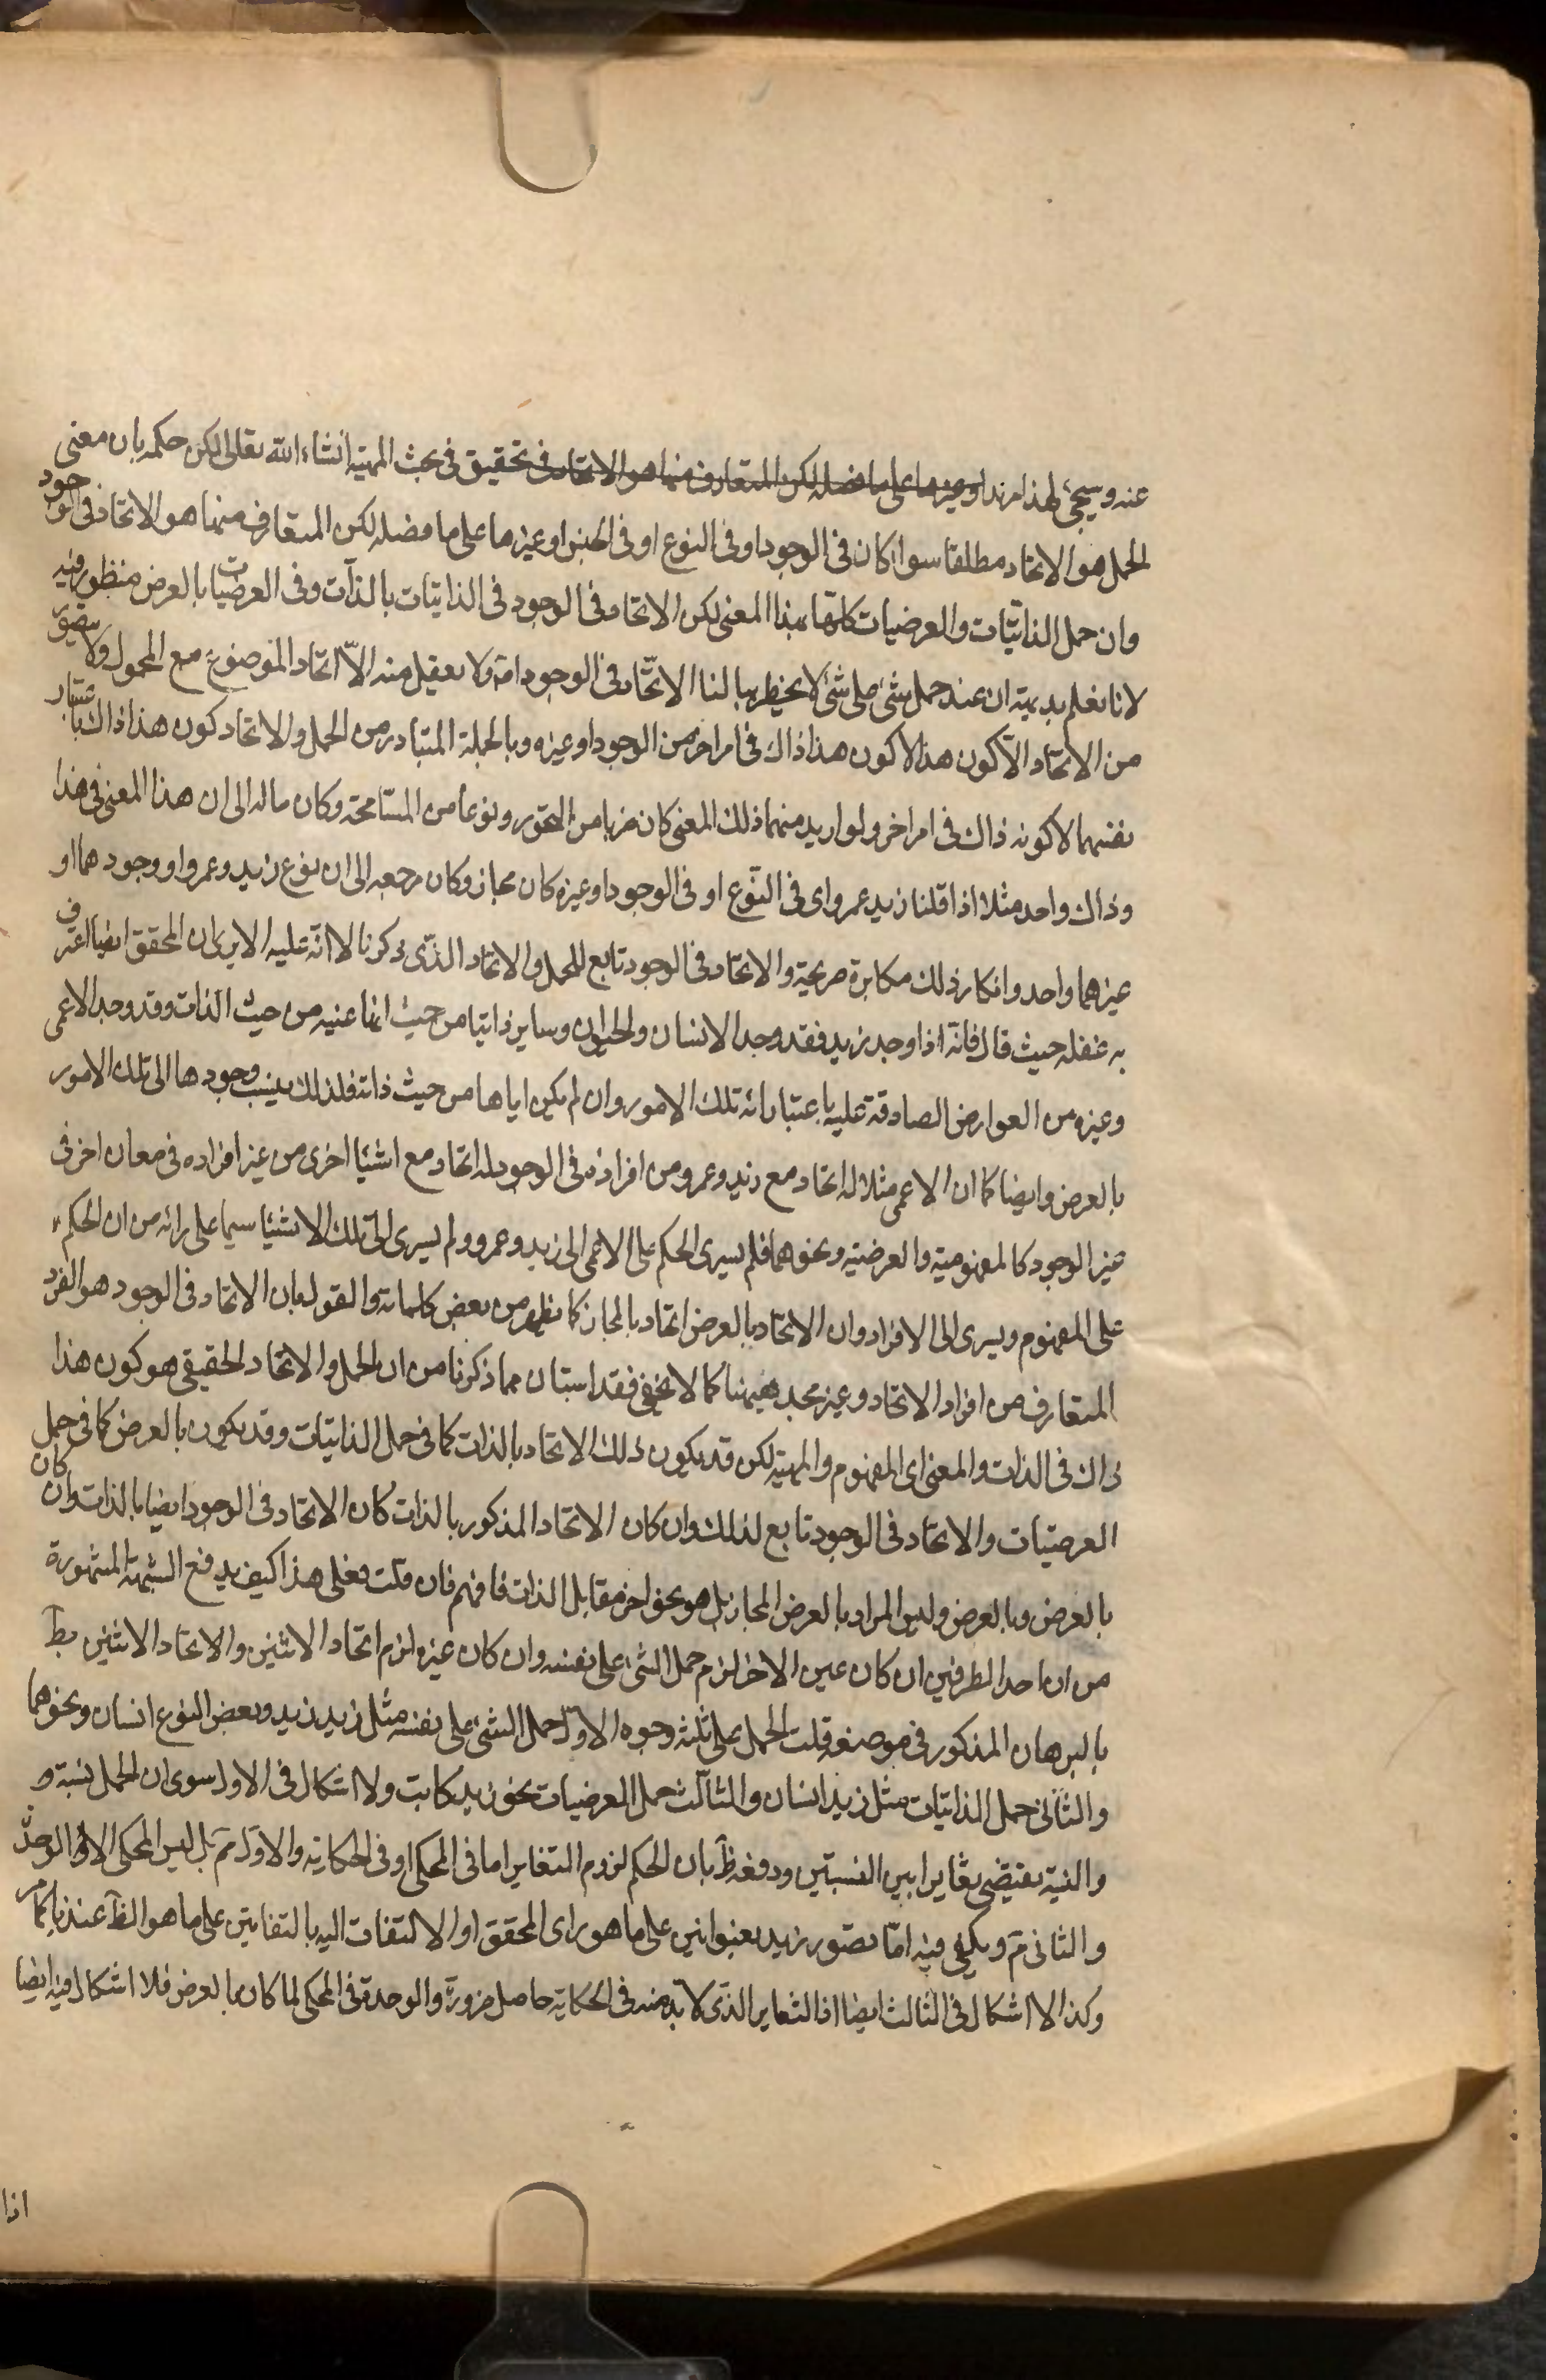 عنه وسيجئ لهذا مزيد او غيرها على ما فصله لكن المتعارف منها هو الاتحاد فى تحقيق فى بحث المهيته انشاء الله تعالى لكن حكمه بان معنى
لحمل هو الاتحاد مطلقا سواء كان فى الوجود او فى النوع او فى الجنس او غيرها على ما فصله لكن المتعارف منها هو الاتحاد فى الوجود
وان حمل الذاتيّات والعرضيات كلها بهذا المعنى لكن الاتحاد فى الوجود فى الذاتيّات بالذآت وفى العرضيات بالعرض منظور فيه
لانا نعلم بديهته ان عند حمل شئ على شئ لا يخطر ببالنا الاتّحاد فى الوجود امة ولا يعقل منه الاّ اتحاد الموضوع مع المحمول ولا يتصور
من الاتحاد الاّ كون هذا لا كون هذا ذاك فى امر اخر من الوجود او غيره وبالجملة المتبادر من الحمل والاتحاد كون هذا ذاك باعتبار
نفسهما لا كونه ذاك فى امر اخر ولو اريد منهما ذلك المعنى كان ضربا من التجوز ونوعا من المسامحة وكان ماله الى ان هذا المعنى فى هذا
وذاك واحد مثلا اذا قلنا زيد عمرو اى فى النّوع او فى الوجود او غيره كان مجاز وكان مرجعه الى ان نوع زيد وعمرو او وجودهما او
غيرهما واحد وانكار ذلك مكابرة صريحة والاتحاد فى الوجود تابع للحمل والاتحاد الذّى ذكرنا لا انّه عليه الا يرى ان المحقق ايضا اعترف
به غفله حيث قال فانّه اذا وجد زيد فقد وجد الانسان والحيوان وساير ذاتيا من حيث انها عنيه من حيث الذات وقد وجد الاعمى
وغيره من العوارض الصادقة عليه باعتبار انه تلك الامور وان لم يكن اياها من حيث ذاته فلذلك ينسب وجودها الى تلك الامور
بالعرض وايضا كما ان الاعمى مثلا له اتحاد مع زيد وعمرو من افراده فى الوجود له اتحاد مع اشيئا اخرى من غير افراده فى معان اخر فى
غير الوجود كالمفهومية والعرضيته ونحوهما فلم يسرى الحكم على الاعمى الى زيد وعمرو ولم يسرى الى تلك الاشيئا سيما على رائه من ان الحكم
على المفهوم ويسرى الى الافراد وان الاتحاد بالعرض اتحاد بالمجاز كما يظهر من بعض كلماته والقول بان الاتحاد فى الوجود هو الفرد
المتعارف من افراد الاتحاد وغير مجد ههنا كما لا يخفى فقد استبان مما ذكرنا من ان الحمل والاتحاد الحقيقى هو كون هذا
ذاك فى الذات والمعنى اى المفهوم والمهيته لكن قد يكون ذلك الاتحاد بالذات كما فى حمل الذاتيات وقد يكون بالعرض كما فى حمل
العرضيّات والاتحاد فى الوجود تابع لذلك وان كان الاتحاد المذكور بالذات كان الاتحاد فى الوجود ايضا بالذات وان كان
بالعرض وبالعرض وليس المراد بالعرض المجاز بل هو نحو اخر مقابل الذات فافهم فان قلت فعلى هذا كيف يدفع الشبهة المشهورة
من ان احد الطرفين ان كان عين الاخر لزم حمل الشئ على نفسه وان كان غيره لزم اتحاد الاثنين والاتحاد الاثنين بطّ
بالبرهان المذكور فى موضعه قلت الحمل على ثلثه وجوه الاوّل حمل الشئ على نفسه مثل زيد زيد وبعض النوع انسان ونحوهما
والثّانى حمل الذاتيّات مثل زيد انسان والثالث حمل العرضيات نحو زيد كاتب ولا اشكال فى الاول سوى ان الحمل نسبة و
والنسبة يقتضى تغايرا بين النسبتين ودفعه ظّ بان الحكم لزوم التغاير اما فى المحكى او فى الحكاية والاول مّ بل ليس المحكى الا الوحدة
والثانى مّ ويكفى فيه امّا تصوّر زيد بعنوانين على ما هو راى المحقق او الالتفات اليه بالتفاتين على ما هو الظّ عندنا كما مر
وكذا لا اشكال فى الثالث ايضا اذ التغاير الذّى لا بد منه فى الحكاية حاصل ضرورة والوحدة فى المحكى لما كان بالعرض فلا اشكال فيه ايضا
اذا